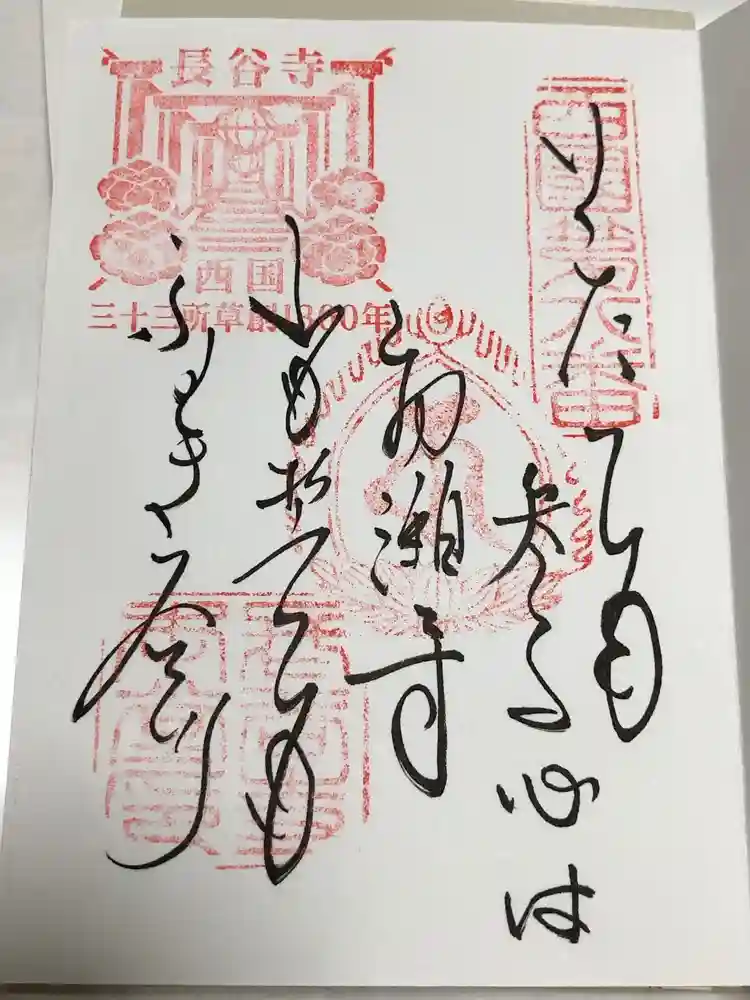 西国第八番
いくたひも
参る心は
初瀬寺
山も誓ひも
ふかき谷川
長谷寺
西国
三十三所草創1300年